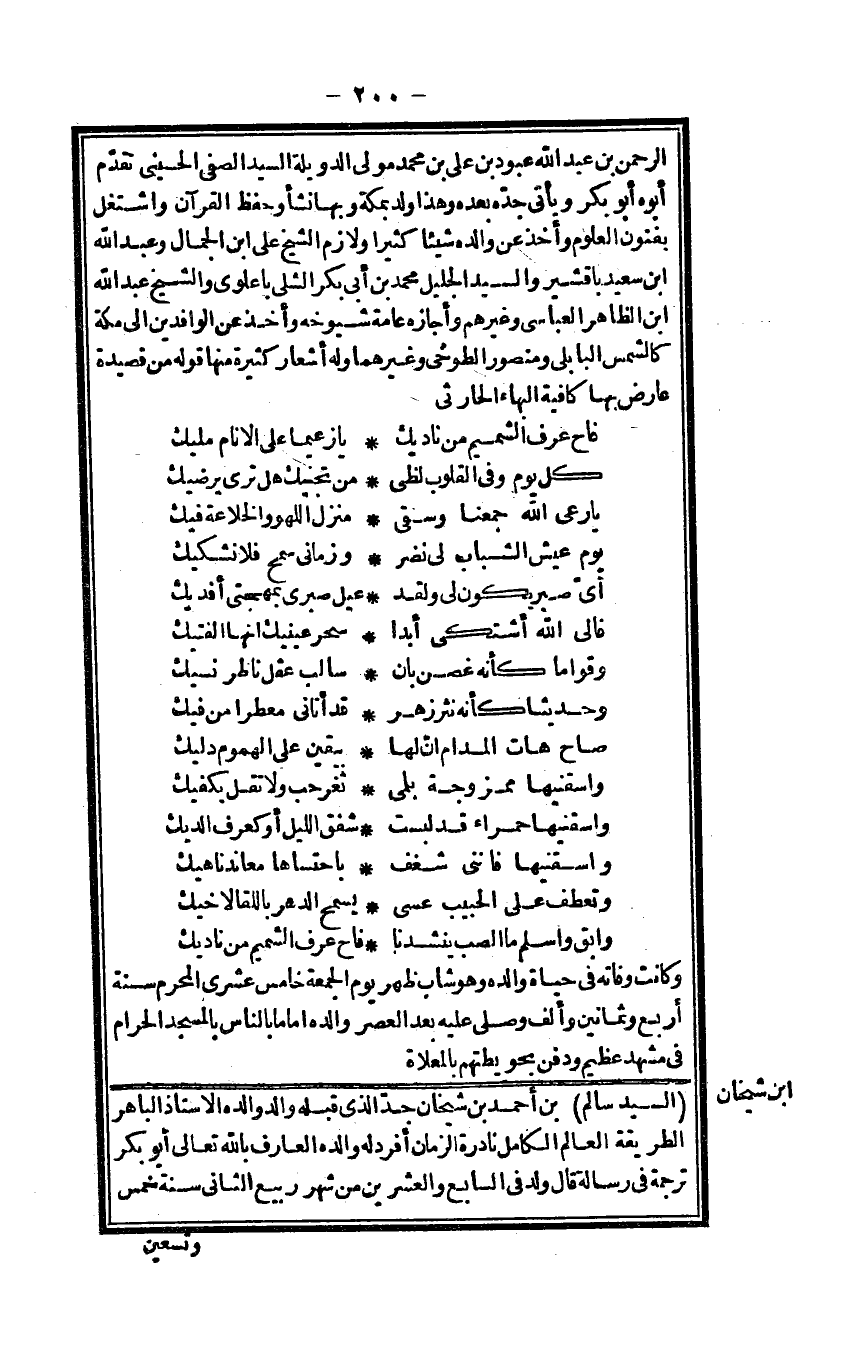 - ٢٠٠ -
الرحمن بن عبد الله عبود بن على بن محمد مولى الدويلة السيد الصفى الحسينى تقدّم
أبوه أبو بكر ويأتى جدّه بعده وهذا ولد بمكة وبها نشأ وحفظ القرآن واشتغل
بفنون العلوم وأخذ عن والده شيئا كثيرا ولازم الشيخ على ابن الجمال وعبد الله
ابن سعيد باقشير والسيد الجليل محمد بن أبى بكر الشلى باعلوى والشيخ عبد الله
ابن الطاهر العباسى وغيرهم وأجازه عامة شيوخه وأخذ عن الوافدين الى مكة
كالشمس البابلى ومنصور الطوخى وغيرهما وله أشعار كثيرة منها قوله من قصيدة
عارض بها كافية البهاء الحارثى
فاح عرف الشميم من ناديك * يازعيما على الانام مليك
كل يوم وفى القلوب لظى * من تجنيك هل ترى يرضيك
يارعى الله جمعنا وسقى * منزل اللهو والخلاعة فيك
يوم عيش الشباب لى نضر * وزمانى سمح فلانشكيك
أىّ صبر يكون لى ولقد * عيل صبرى بمهجتى أفديك
فالى الله أشتكى أبدا * سحر عينيك انها الفتيك
وقواما كأنه غصن بان * سالب عقل ناظر نسيك
وحديثا كأنه نثر زهر * قد أتانى معطرا من فيك
صاح هات المدام انّ لها * يقين على الهموم دليك
واسقنيها ممزوجة بلمى * ثغر حب ولا تقل يكفيك
واسقنيها حمراء قد لبست * شفق الليل أو كعرف الديك
واسقنيها فاننى شغف * باحتساها معاند ناهيك
وتعطف على الحبيب عسى * يسمح الدهر باللقا لاخيك
وابق واسلم ما الصب ينشدنا * فاح عرف الشميم من ناديك
وكانت وفاته فى حياة والده وهو شاب ظهر يوم الجمعة خامس عشرى المحرم سنة
أربع وثمانين وألف وصلى عليه بعد العصر والده اماما بالناس بالمسجد الحرام
فى مشهد عظيم ودفن بحويطتهم بالمعلاة
ابن شيخان
(السيد سالم) بن أحمد بن شيخان جدّ الذى قبله والد والده الاستاذ الباهر
الطريقة العالم الكامل نادرة الزمان أفرد له والده العارف بالله تعالى أبو بكر
ترجمة فى رسالة قال ولد فى السابع والعشرين من شهر ربيع الثانى سنة خمس
وتسعين